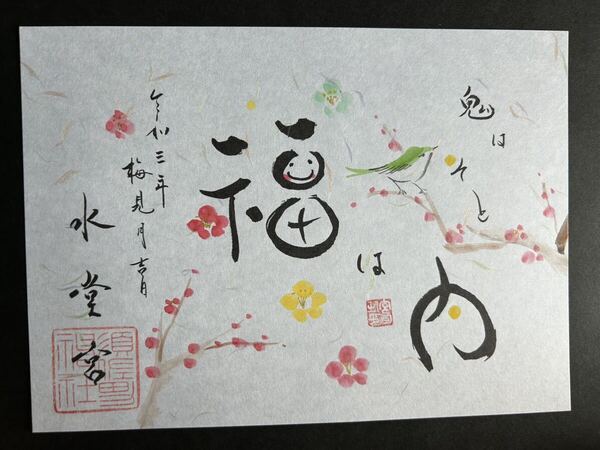 鬼はそと
福は内
令和三年
梅見月吉日
水堂宮